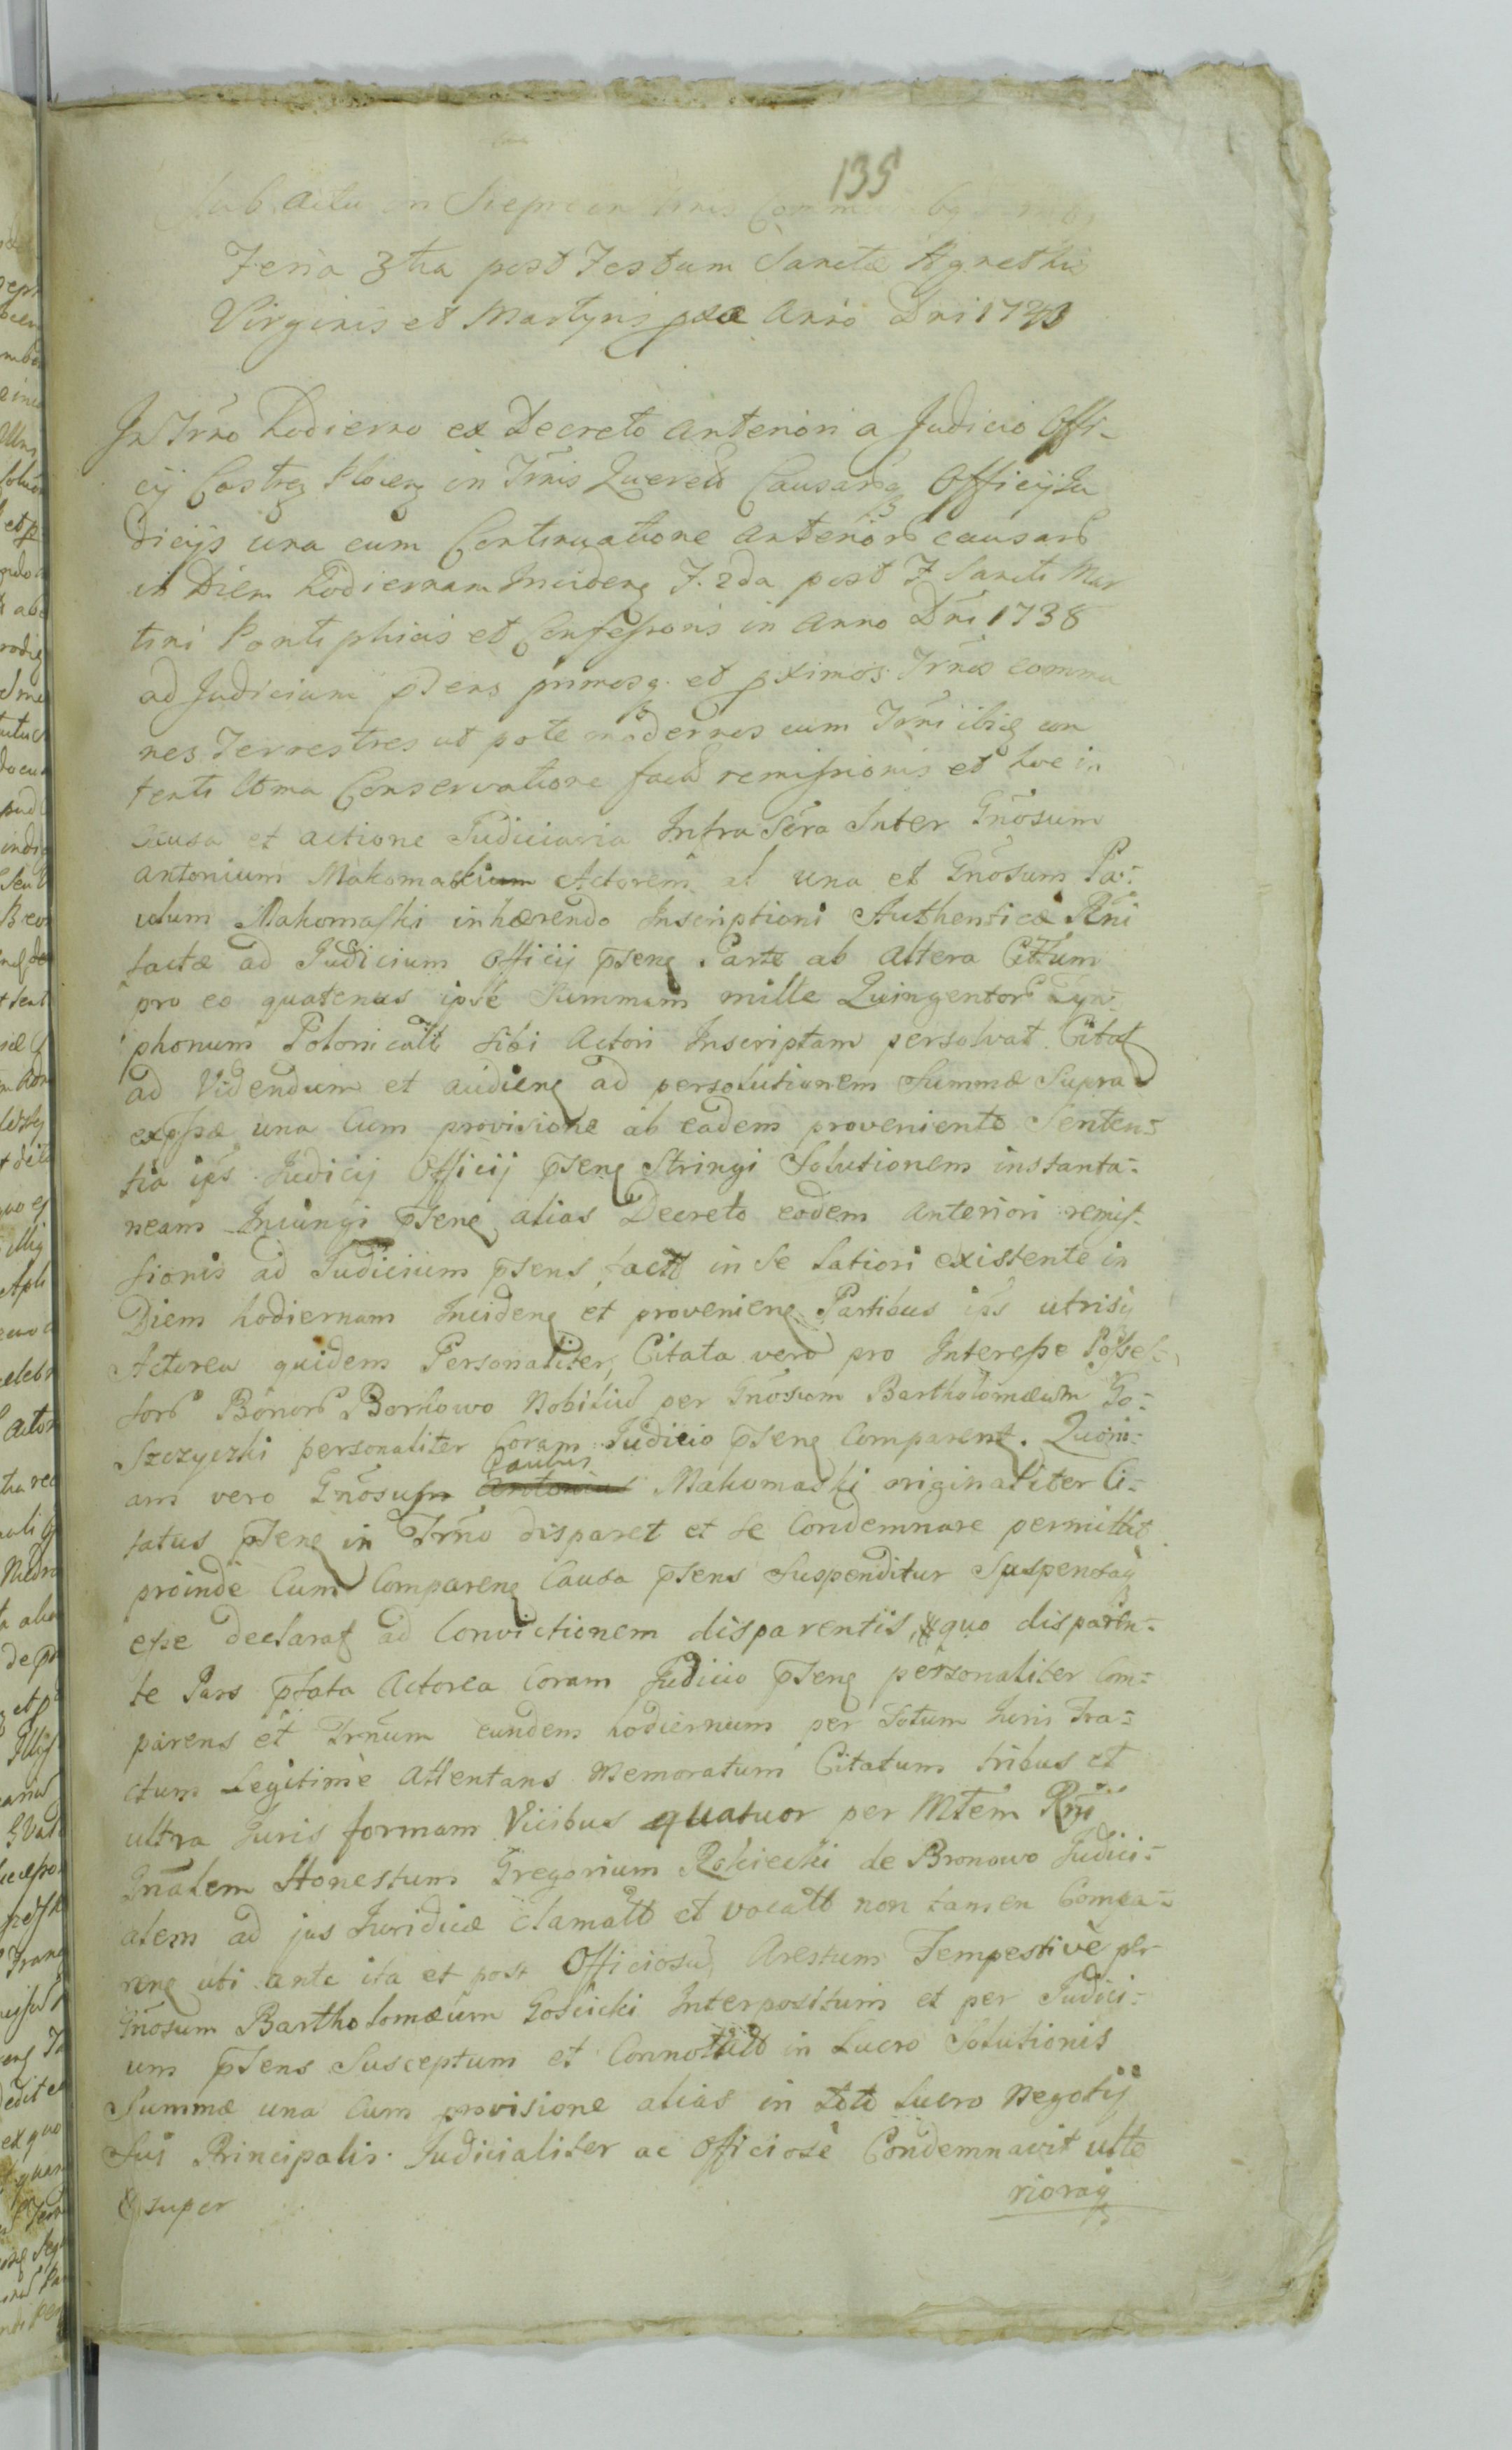 135
Sub Actu in Sieprcen
Feria 3tia post Festum Sanctæ Agnethis
Virginis et Martyris pxæ Anno Dni 1743
In Trno hodierno ex Decreto anteriori a Judicio Offi-
cij Castrej Plocen in Trnis Querel Causarq Officij Ju
dicijs una cum Continuatione anterior causar
in Diem hodiernam Inciden F. 2da post F Sancti Mar
tini Pontiphicis et Confessoris in Anno Dni 1738
ad Judicium pnens primosq et pximos Trnos commu
nes Terrestres ut pote modernos cum Trni ibiq con
tenti ltma Conservatione fact remissionis et hoc in
causa et actione Judiciaria Infra Scra Inter Gnosum
Antonium Makomaskium Actorem al una et Gnosum Pa-
ulum Makomaski inhærendo Inscriptioni Authenticæ Rni
factæ ad Judicium Officij pnens Parte ab altera Cittum
pro eo quatenus ipse Summam mille Quingentor Tyn-
phonum Polonicall sibi Actori Inscriptam persolvat Citat
ad Videndum et audien ad persolutionem Summæ Supra
expssæ una Cum provisione ab eadem proveniente Senten-
tia ips Judicij Officij pnens Stringi Solutionem instanta-
neam Iniungi pnens alias Decreto eodem anteriori remis-
sionis ad Judicium pnens facto in se latiori existente in
Diem hodiernam Inciden et provenien Partibus ips utrisq
Actorea quidem Personaliter, Citata vero pro Interesse Posses-
sor Bonor Borkowo Nobiliu per Gnosum Bartholomæum Go-
Szczyczki personaliter Coram Judicio pnens Comparent. Quoni-
Paulus
am vero Gnosum Antonius Makomaski originaliter Ci-
tatus pnens in Trno disparet et se Condemnare permittit
proinde Cum Comparen Causa pnens Suspenditur Suspensaq
esse declarat ad Convictionem disparentis, & quo disparen-
te Pars ptata Actorea Coram Judicio pnens personaliter Com-
parens et Trnum eundem hodiernum per totum Juris Tra-
ctum Legitimè Attentans Memoratum Citatum tribus et
ultra Juris formam Vicibus quatuor per Mtem Rni
Gnalem Honestum Gregorium Rokiecki de Bronowo Judici-
alem ad jus Juridicæ clamatt et vocatt non tamen Compa-
ren uti ante ita et post Officiosu Arestum Tempestivè per
Gnosum Bartholomæum Goscicki Interpositum et per Judici-
um pnens Susceptum et Connotatt in Lucro Solutionis
Summæ una Cum provisione alias in toto Lucro Negotij
Sui Principalis Judicialiter ac Officiosè Condemnavit ulte
rioraq
& super